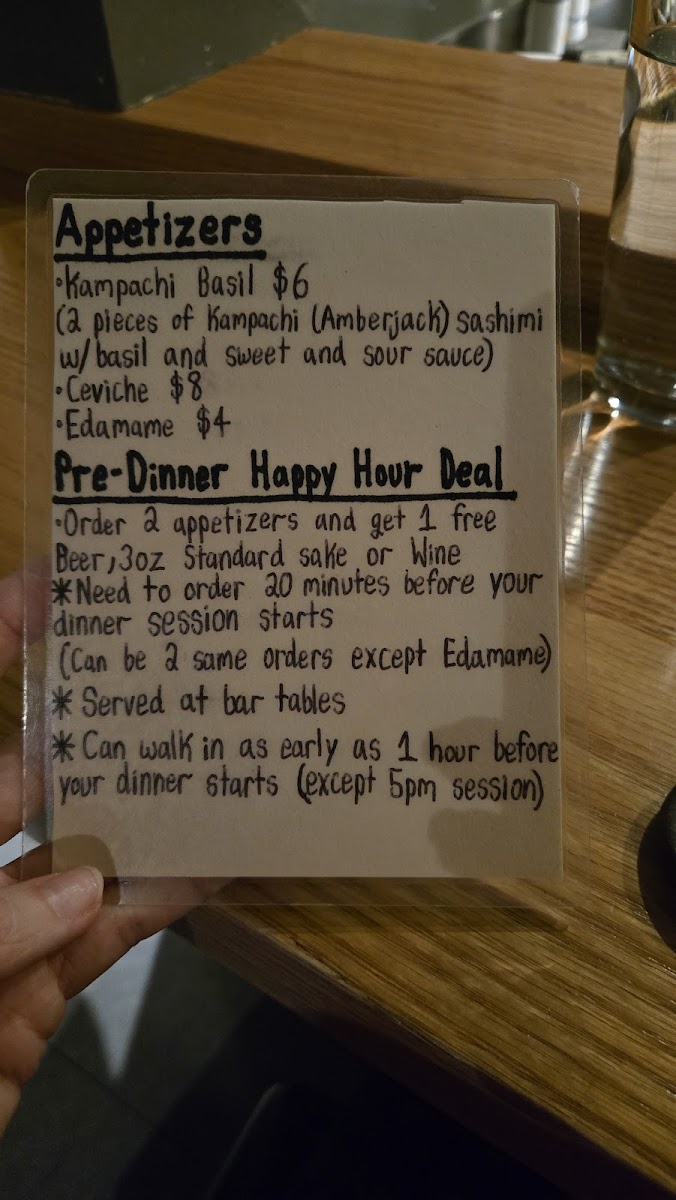 Appetizers
·Kampachi Basil $6
(2 pieces of Kampachi (Amberjack) sashimi
w/ basil and sweet and sour sauce)
·Ceviche $8
·Edamame $4
Pre-Dinner Happy Hour Deal
·Order 2 appetizers and get 1 free
Beer, 3oz Standard sake or Wine
*Need to order 20 minutes before your
dinner session starts
(Can be 2 same orders except Edamame)
* Served at bar tables
* Can walk in as early as 1 hour before
your dinner starts (except 5pm session)